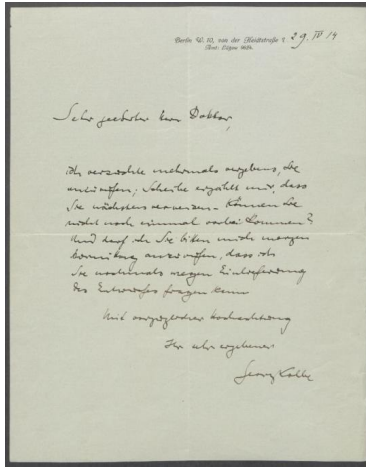 Berlin W. 10, von der Heidtstraße 7 29. IV 14
Amt: Lützow
Sehr geehrter Herr Doktor,
ich versuchte mehrmals vergebens, Sie
anzurufen; Scheibe erzählt mir, dass
Sie nächstens verreisen. Können Sie
nicht noch einmal vorbei kommen?
Und darf ich Sie bitten mich morgen
vormittag anzurufen, dass ich
Sie nochmals wegen Einlieferung
des Entwurfes fragen kann
Mit vorzüglicher Hochachtung
Ihr sehr ergebener
Georg Kolbe